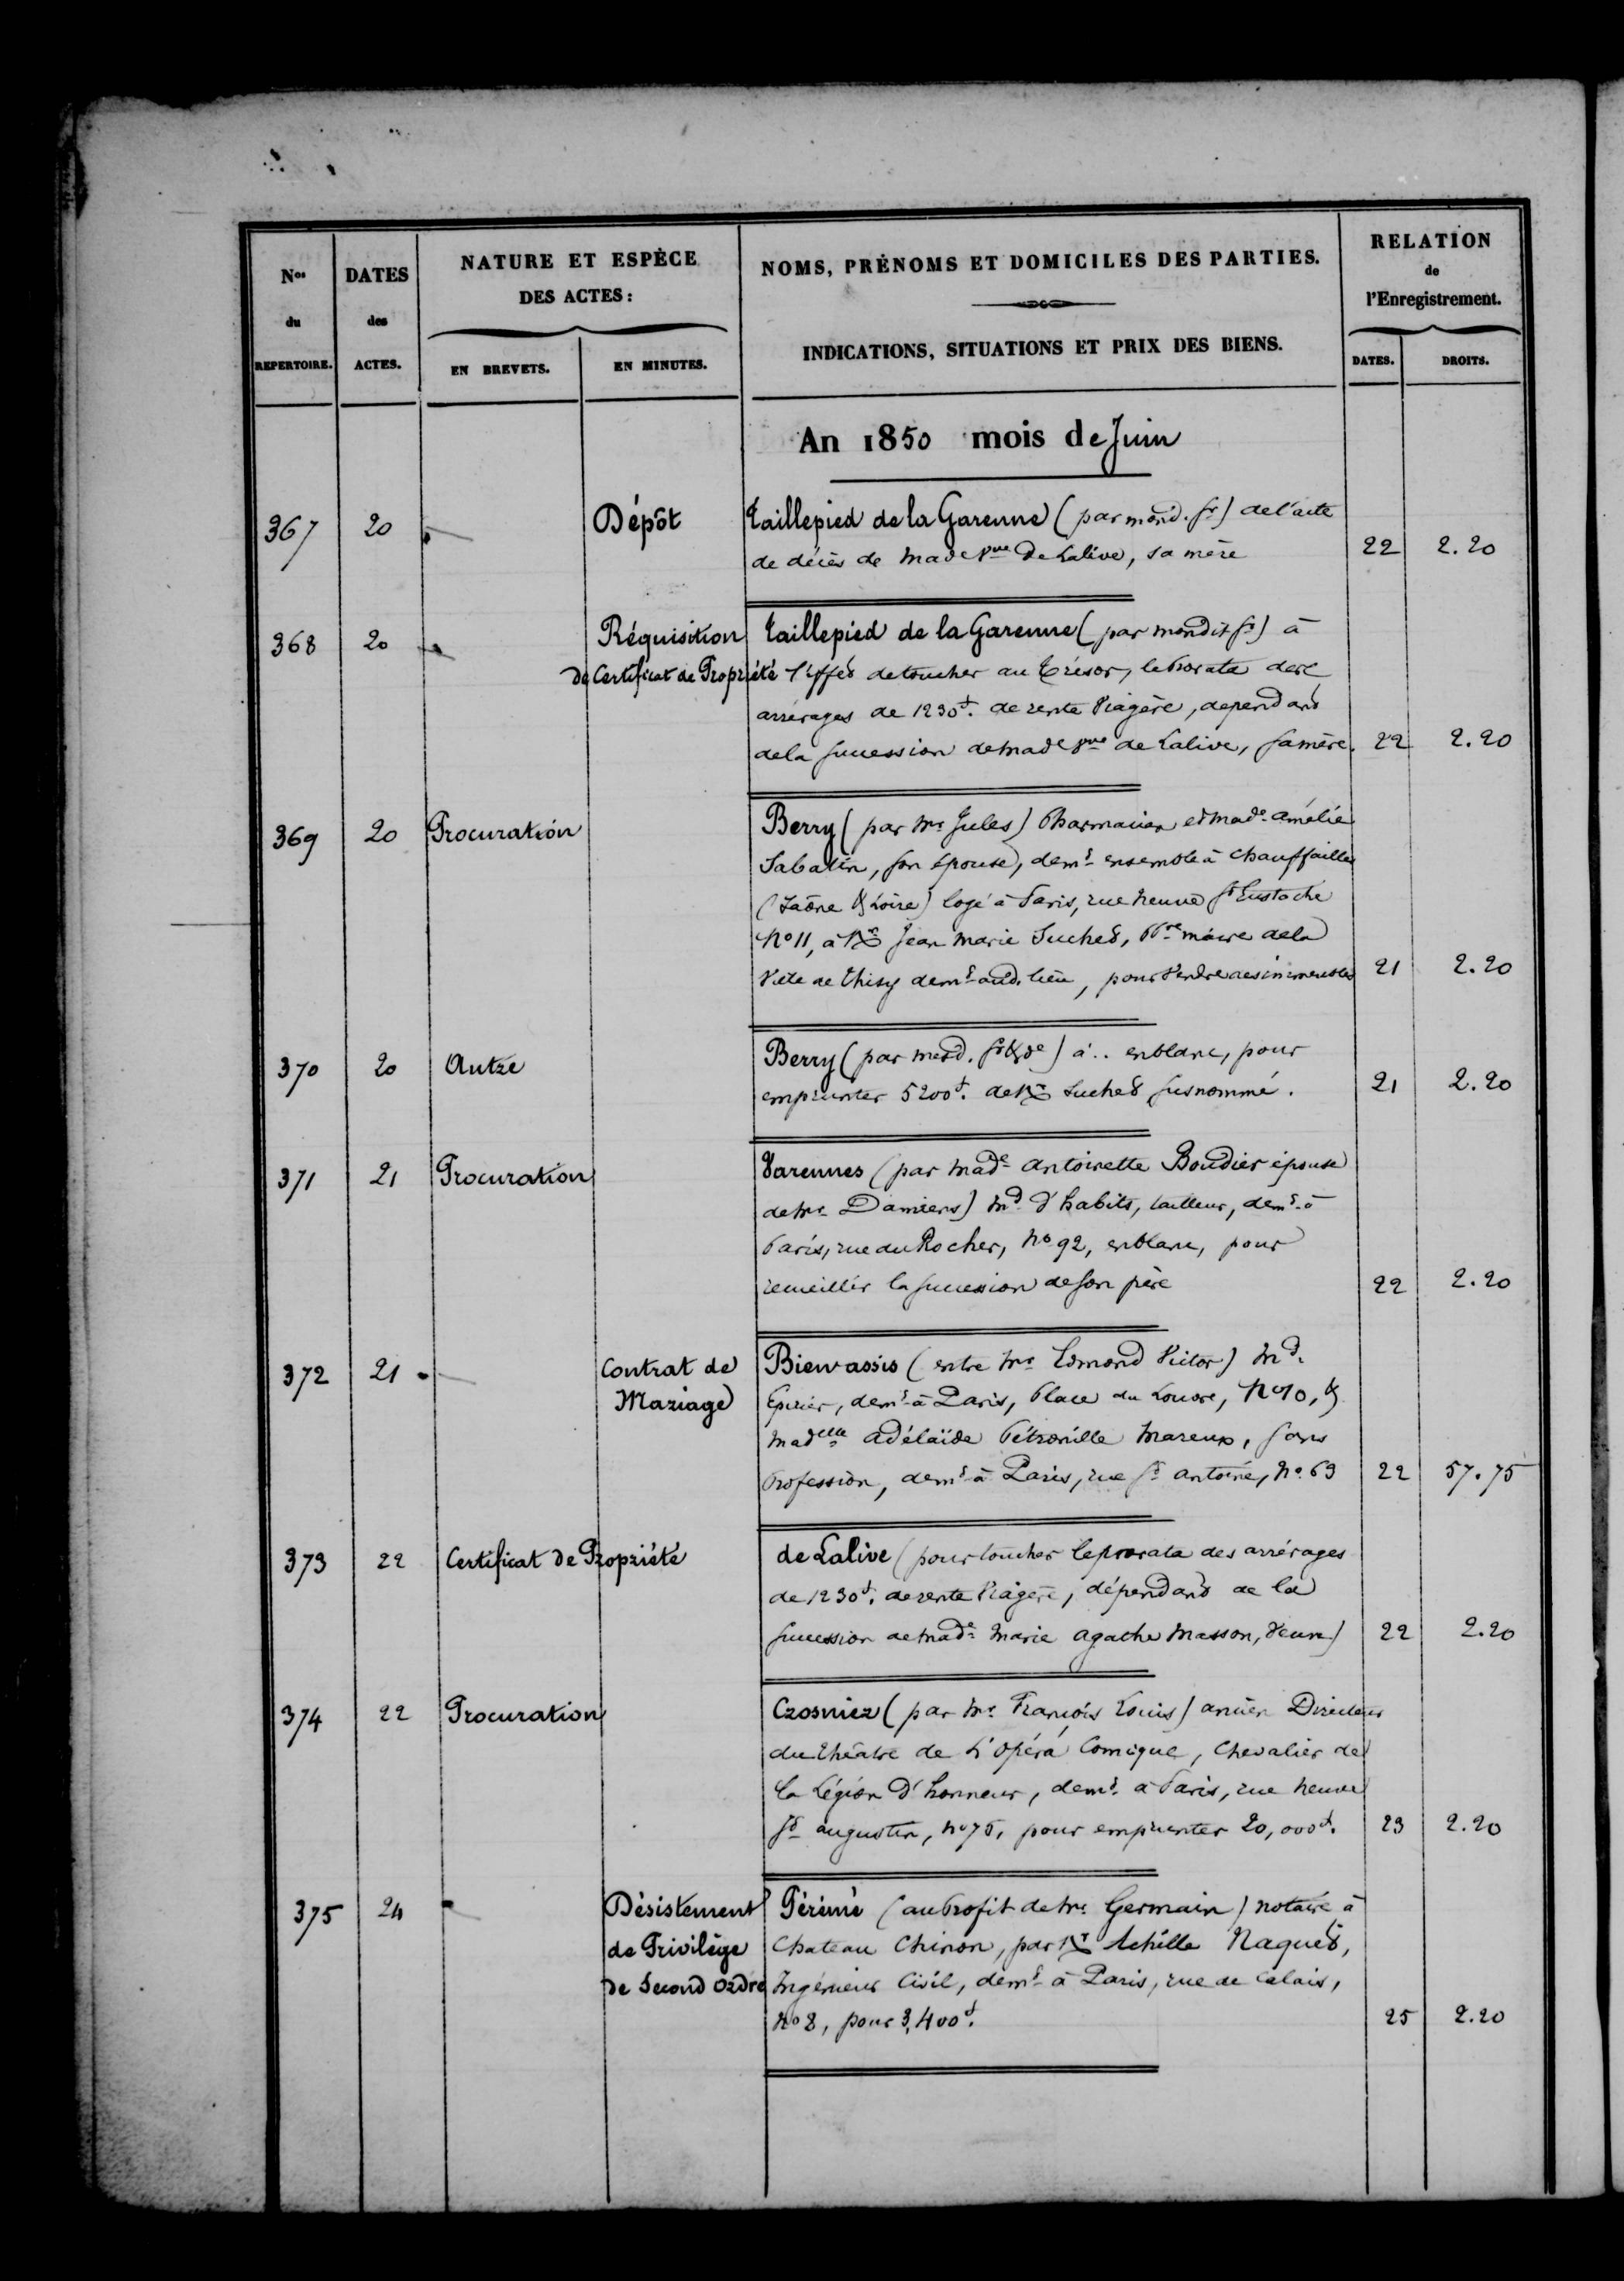 Nos du REPERTOIRE.
DATES des ACTES.
NATURE ET ESPÈCE DES ACTES:
EN BREVETS.
EN MINUTES.
NOMS, PRÉNOMS ET DOMICILES DES PARTIES.
INDICATIONS, SITUATIONS ET PRIX DES BIENS.
RELATION de l'Enregistrement.
DATES.
DROITS.
An 1850 mois de Juin
367 20 Dépôt Taillepied de la Garenne (par mond. Sr) de l'acte
de décès de made Vve de Lalive, sa mère 22 2.20
368 20 Réquisition Taillepied de la Garenne (par mondit Sr) à
de Certificat de Propriété l'effet de toucher au Trésor, le Prorata des
arrérages de 1230f. de rente Viagère, dependant
de la succession de made Vve de Lalive, sa mère. 22 2.20
369 20 Procuration Berry (par Mr Jules) Pharmacien et made Amélie
Sabatin, son épouse, demt ensemble à Chauffailles
(Saône & Loire) logé à Paris, rue neuve St Eustache
No 11, à Mr Jean Marie Suchet, maire de la
Ville de Thizy demt aud. lieu, pour Vendre des immeubles 21 2.20
370 20 Autre Berry (par mesd. Sr & de) à .. en blanc, pour
emprunter 5200f. de Mr Suchet susnommé. 21 2.20
371 21 Procuration Varennes (par made Antoinette Boudier épouse
de Mr Damiens) Md d'habits, tailleur, demt à
Paris, rue du Rocher, No 92, en blanc, pour
recueillir la succession de son père 22 2.20
372 21 Contrat de Bienassis (entre Mr Edmond Victor) Md.
Mariage Epicier, demt à Paris, Place du Louvre, No 10, &
madelle Adélaïde Pétronille Mareux, sans
Profession, demt à Paris, rue St Antoine, No 69 22 57.75
373 22 Certificat de Propriété de Lalive (pour toucher le prorata des arrérages
de 1230f. de rente Viagère, dépendant de la
succession de made Marie Agathe Masson, Veuve) 22 2.20
374 22 Procuration Crosnier (par Mr François Louis) ancien Directeur
du Théâtre de L'Opéra Comique, Chevalier de
la Légion d'honneur, demt à Paris, rue neuve
St Augustin, No 75, pour emprunter 20,000f. 23 2.20
375 24 Désistement Périmé (au Profit de Mr Germain) notaire à
de Privilège Chateau Chinon, par Mr Achille Naquet,
de Second Ordre Ingénieur Civil, demt à Paris, rue de Calais,
No 8, pour 3,400f. 25 2.20